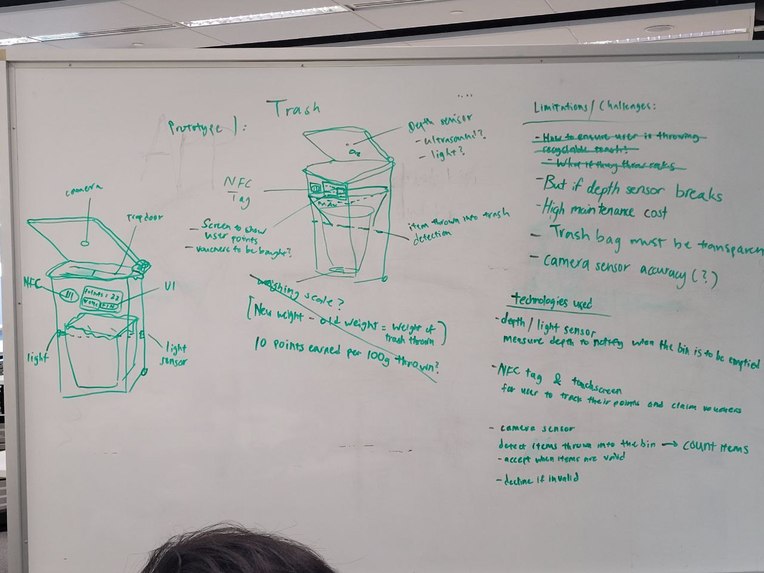 Trash
Prototype 1:
Depth sensor
- ultrasonic?
- light?
NFC
Tag
- Screen to show
user points
- vouchers to be bought?
item thrown into trash
detection
weighing scale?
[New weight - old weight = weight of
trash thrown]
10 points earned per 100g thrown?
camera
Trapdoor
NFC
UI
points: 22
light
light
sensor
Limitations/Challenges:
- How to ensure user is throwing
recyclable trash?
- What if they throw rocks
- But if depth sensor breaks
- High maintenance cost
- Trash bag must be transparen
- camera sensor accuracy (?)
technologies used
- depth / light sensor
measure depth to notify when the bin is to be emptied
- NFC tag & touchscreen
for user to track their points and claim vouchers
- camera sensor
detect items thrown into the bin → count items
- accept when items are valid
- decline if invalid